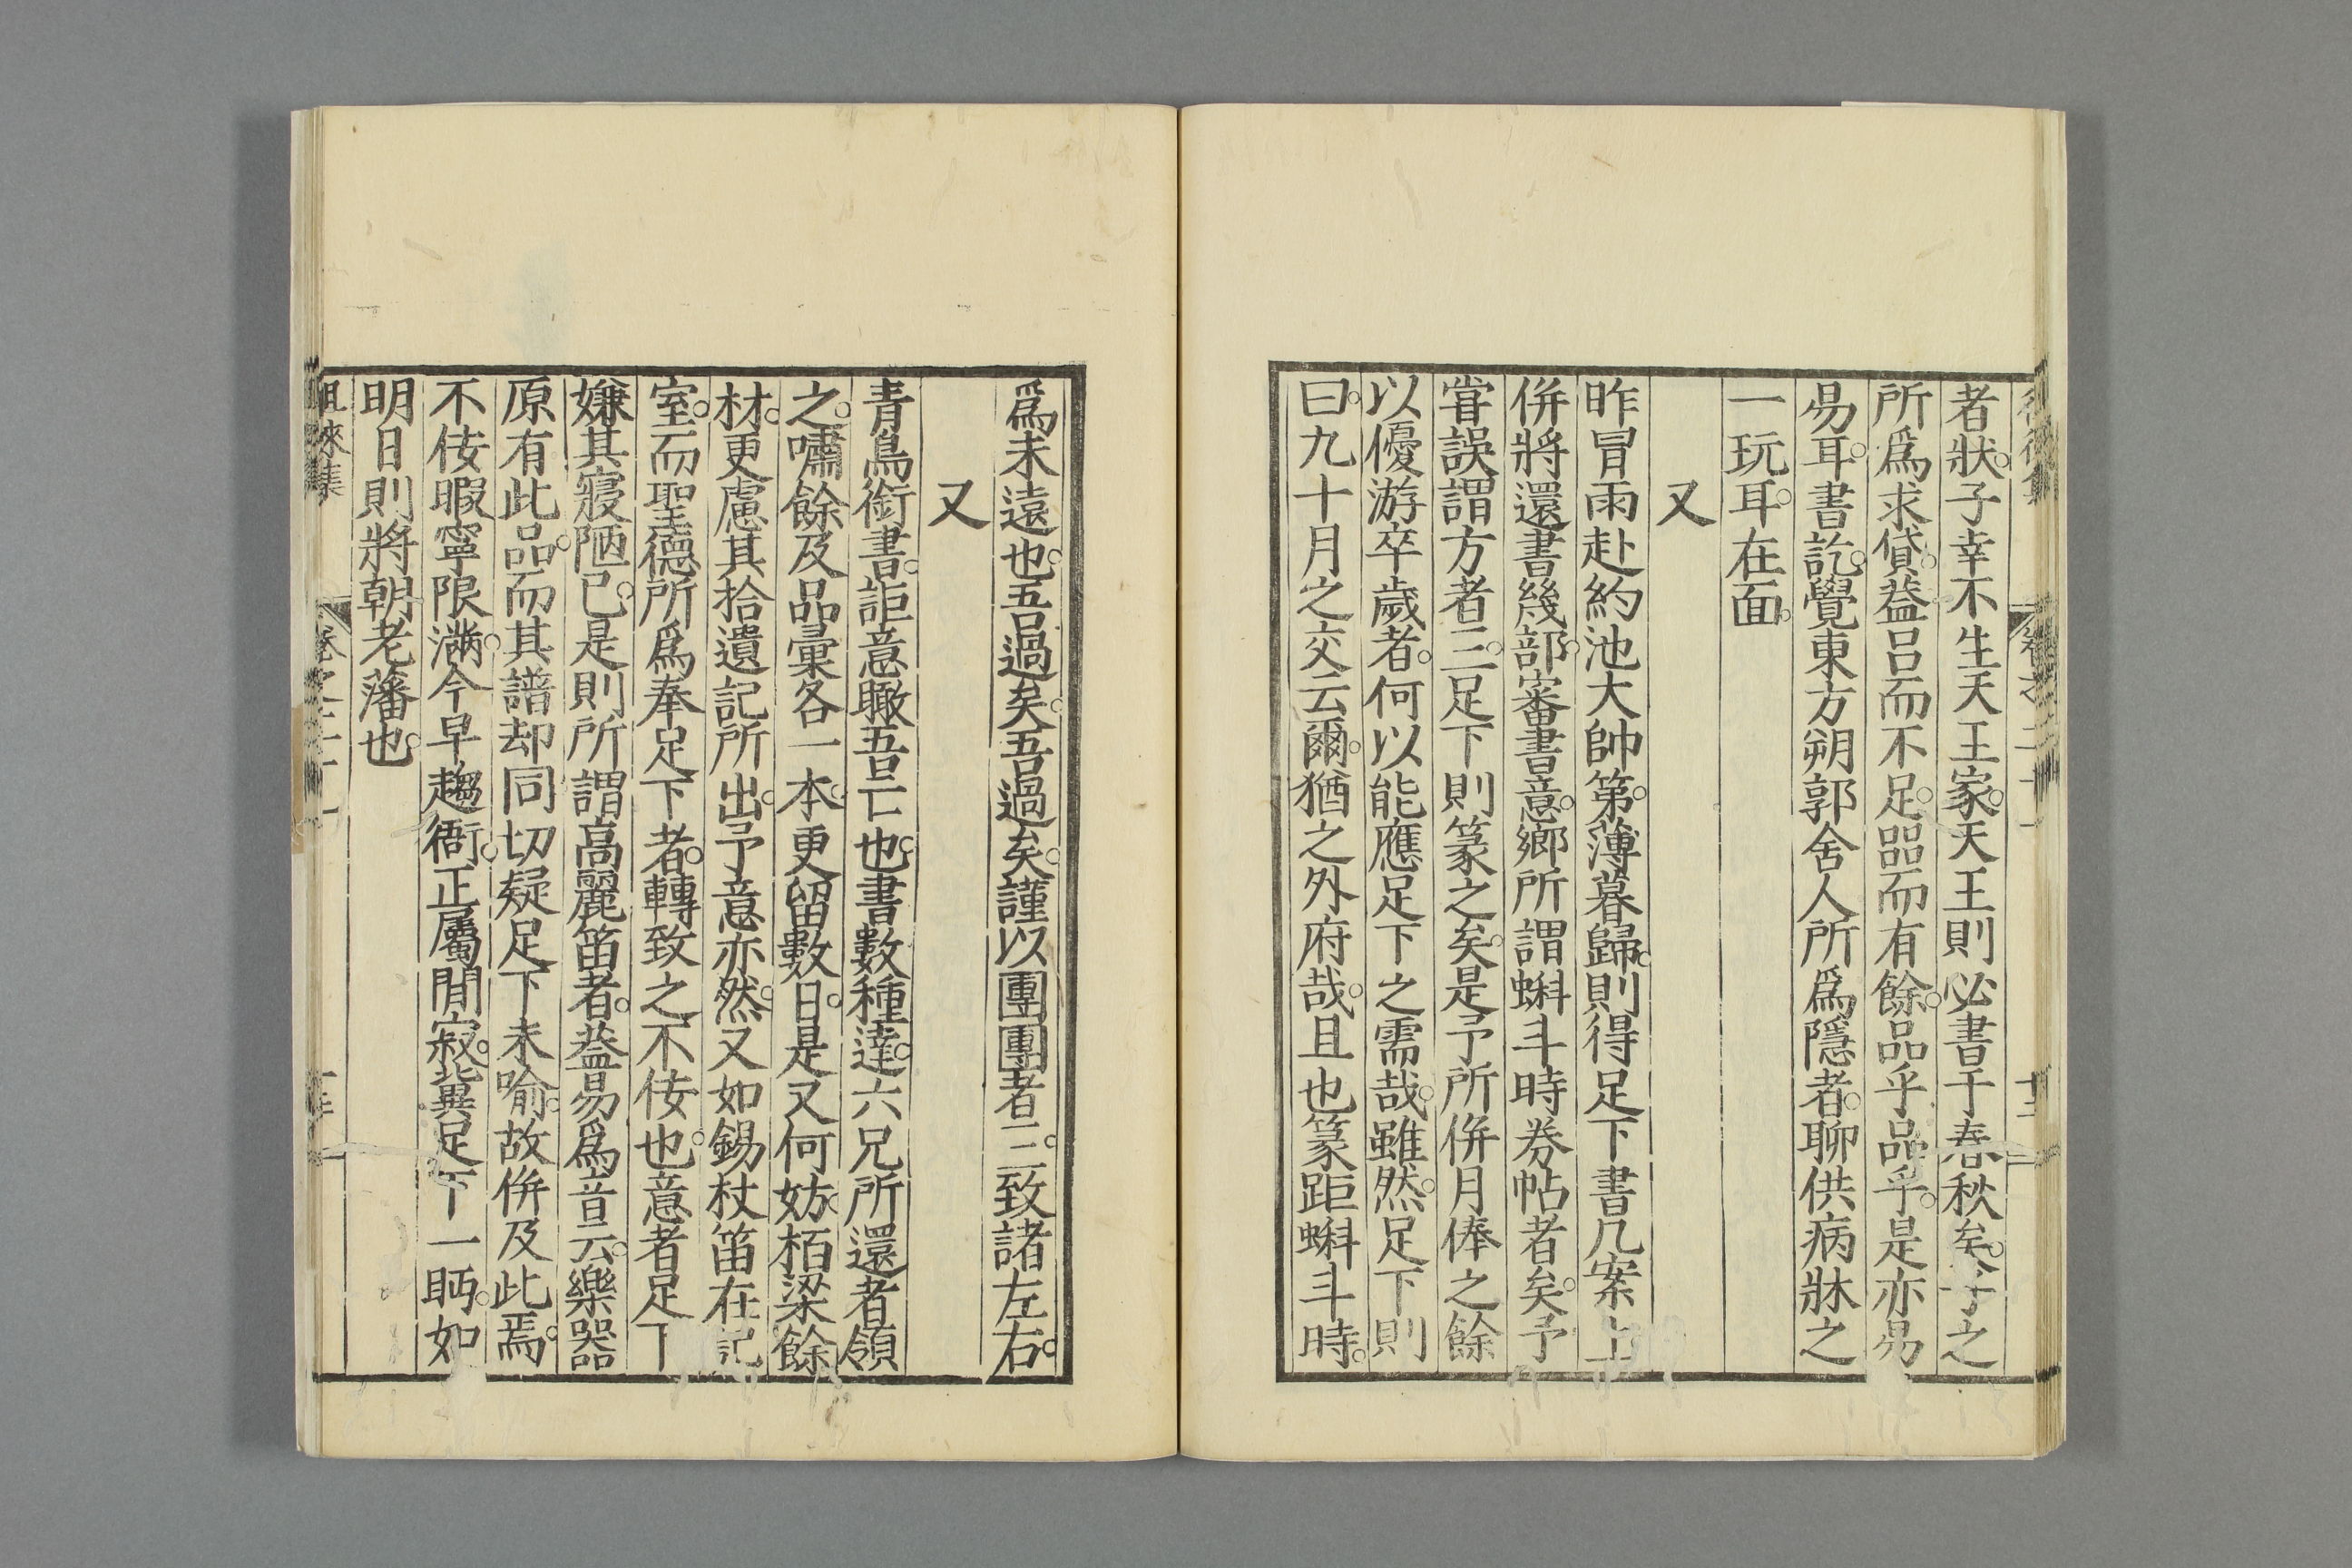 者狀。子幸不生天王家。天王則必書于春秋矣。子之
所爲求貸。葢呂而不足。㗊而有餘。品乎品乎。是亦易
易耳。書訖。覺東方朔郭舍人所爲隱者。聊供病牀之
一玩耳。在面。
又
昨冒雨赴約池大帥第。薄暮歸。則得足下書几案上
併將還書幾部。審書意。鄉所謂蝌斗時劵帖者矣。予
甞誤謂方者三。足下則篆之矣。是予所併月俸之餘
以優游卒歲者。何以能應足下之需哉。雖然。足下則
曰。九十月之交云爾。猶之外府哉。且也篆距蝌斗時。
爲未遠也。吾過矣。吾過矣。謹以團團者三。致諸左右。
又
青鳥銜書。詎意瞰吾亡也。書數種達。六兄所還者領
之。嘯餘及品彙各一本。更留數日。是又何妨。栢梁餘
材。更慮其拾遺記所出。予意亦然。又如錫杖笛在記
室。而聖德所爲奉足下者。轉致之不佞也。意者足下
嫌其寢陋已。是則所謂高麗笛者。葢易爲音云。樂器
原有此品。而其譜却同。切疑足下未喻。故併及此焉。
不佞暇寧限滿。今早趨衙。正屬閒寂。冀足下一眄。如
明日則將朝老藩也。
徂徠集
卷之二十一